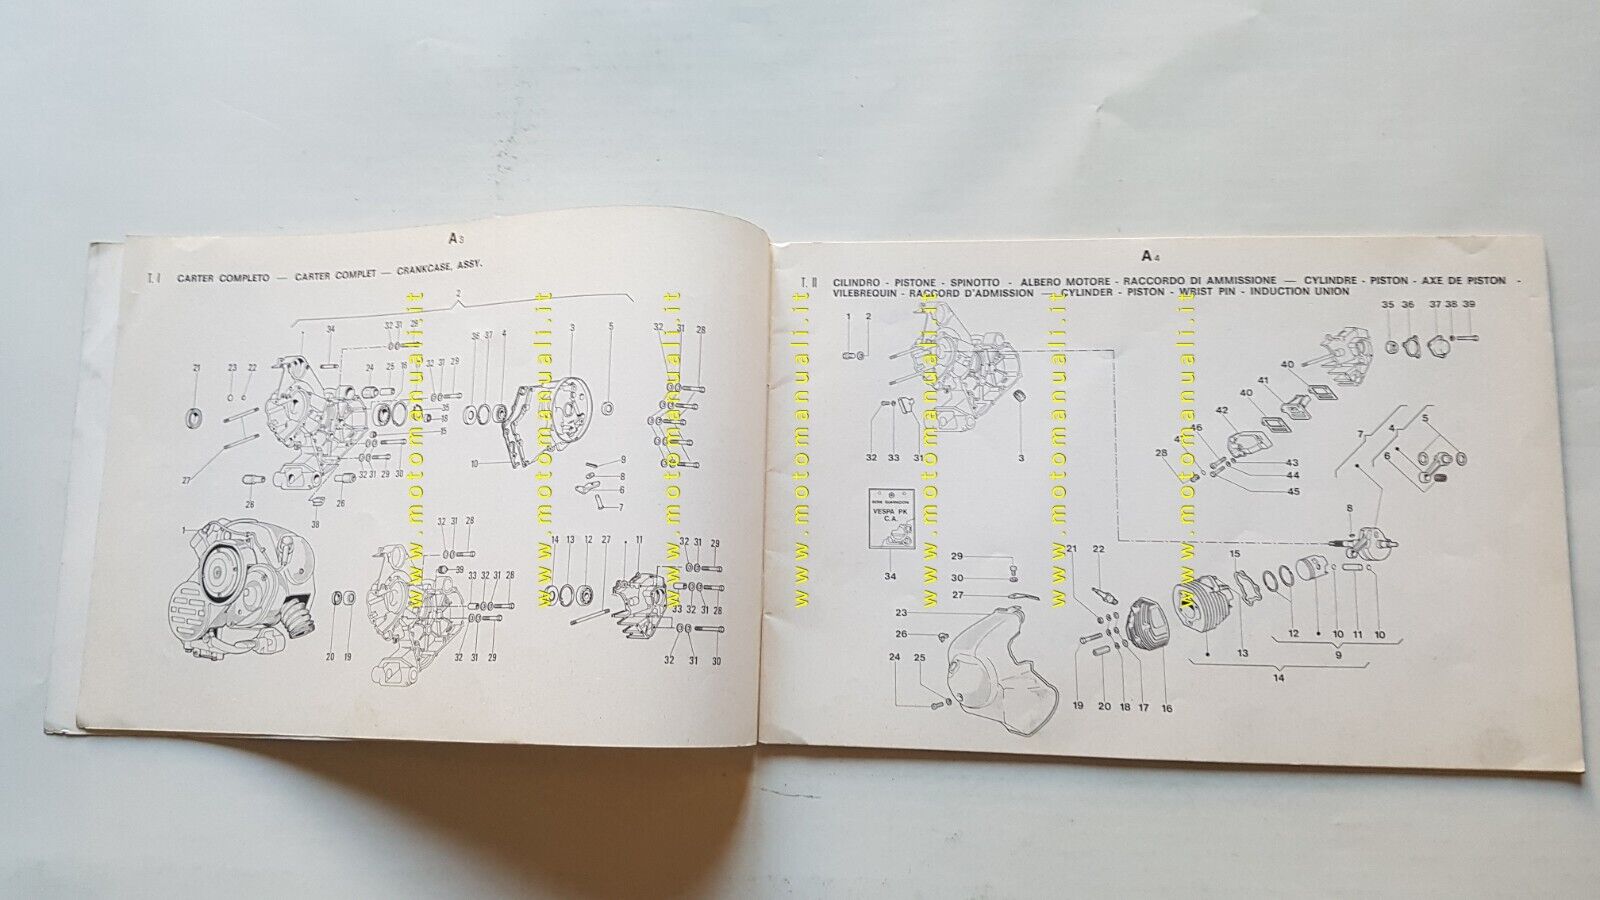 A3
T. I CARTER COMPLETO — CARTER COMPLET — CRANKCASE, ASSY.
2
34 32 31 28 36 37 4 3 5 32 31 28
21 23 22 24 25 18 32 31 29
35
16
15
10
27 32 31 29 30
26 38 26
9
8
6
7
1
32 31 28
39
33 32 31 28
14 13 12 27 11 32 31 29
33 32 31 28
20 19 32 31 29 32 31 30
A4
T. II CILINDRO - PISTONE - SPINOTTO - ALBERO MOTORE - RACCORDO DI AMMISSIONE — CYLINDRE - PISTON - AXE DE PISTON -
VILEBREQUIN - RACCORD D'ADMISSION — CYLINDER - PISTON - WRIST PIN - INDUCTION UNION
1 2 35 36 37 38 39
40
41
40
42
46
28
43
44
45
32 33 31 3
7 4 5
6
8
SERIE GUARNIZIONI
VESPA PK
C.A.
34
29
30
27
21 22
23
26
24 25
19 20 18 17 16
15
13 12 10 11 10
9
14
www.motomanuali.it
www.motomanuali.it
www.motomanuali.it
www.motomanuali.it
www.motomanuali.it
www.motomanuali.it
www.motomanuali.it